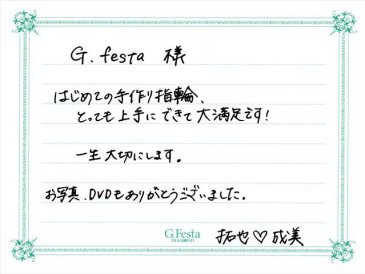 G.festa 様
はじめての手作り指輪、
とっても上手にできて大満足です!
一生大切にします。
お写真、DVDもありがとうございました。
G.Festa
DIAMOND
拓也♡成美